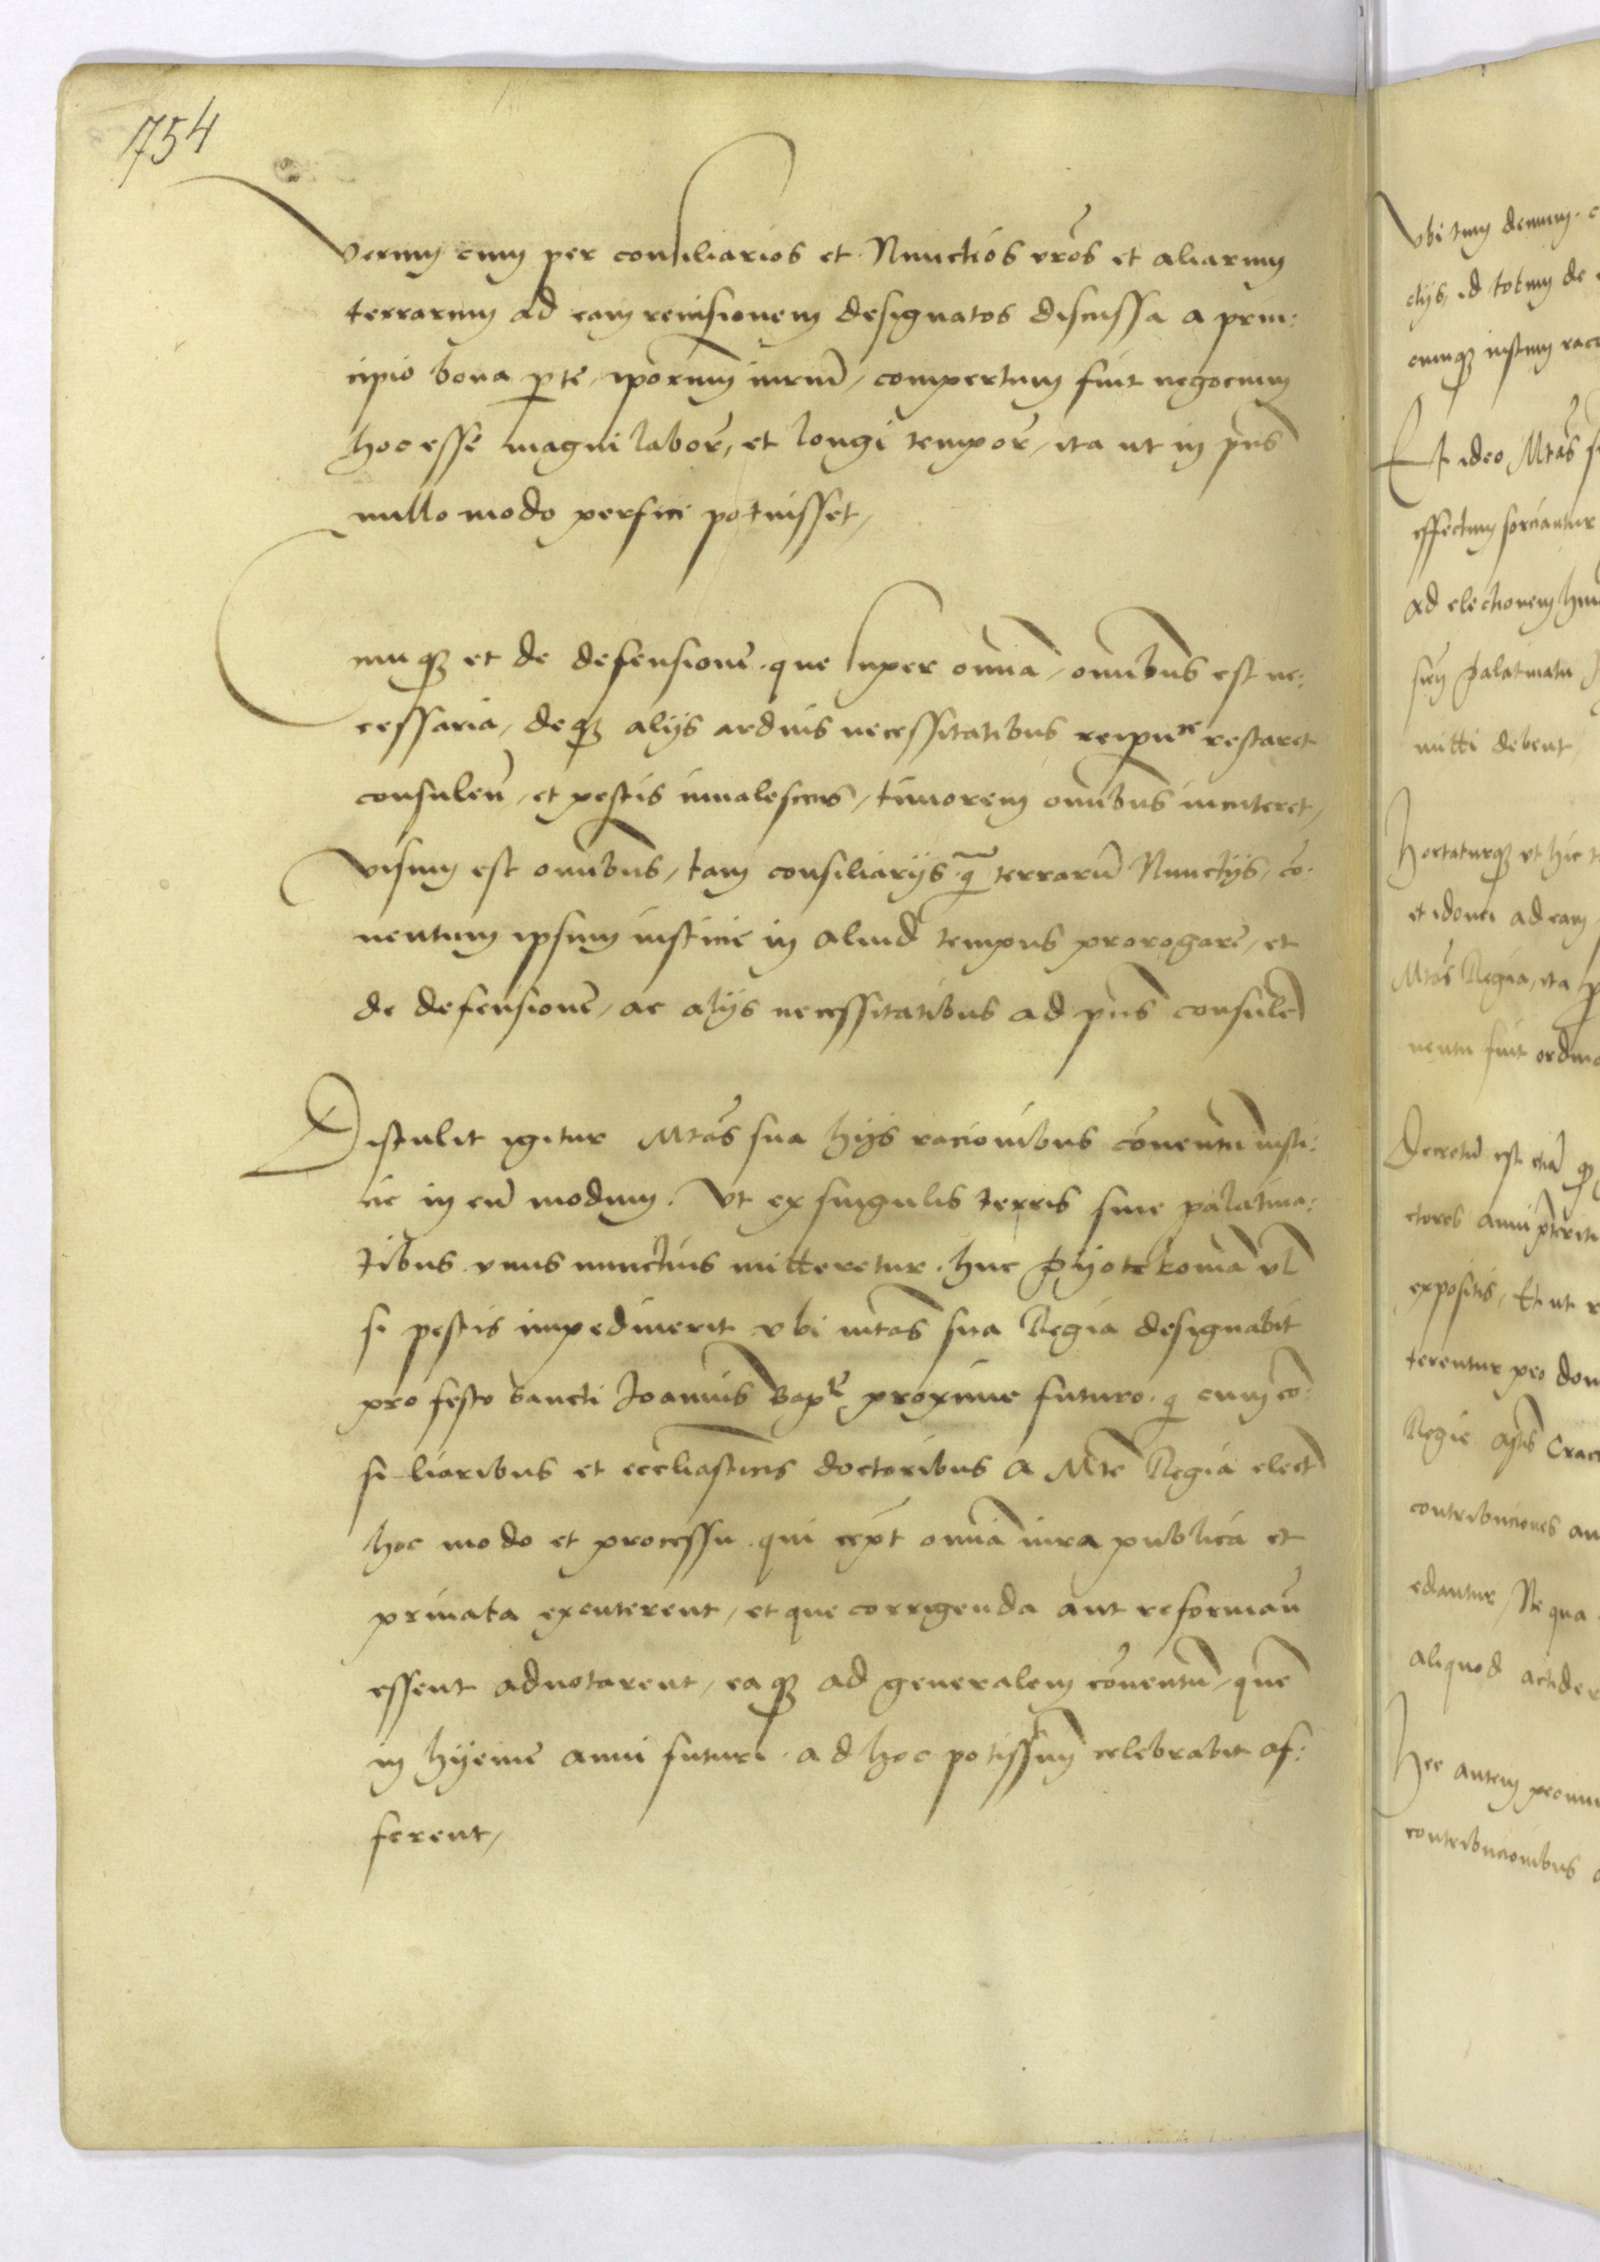 1754
Verum cum per consiliarios et Nunctios vros et aliarum
terrarum ad eam reuisionem designatos discussa a prin:
cipio bona pte, iporum iurium, compertum fuit negocium
hoc esse magni labor, et longi tempor, ita ut in pns
nullo modo perfici potuisset,
Cumq3 et de defensione . que super omnia, omnibus est ne:
cessaria, deq3 alijs arduis necessitatibus reipuce restaret
consulen, et pestis inualescens, timorem omnibus incuteret,
visum est omnibus, tam consiliarijs . q terraru Nunctijs, co:
uentum ipsum iusticie in aliud tempus prorogare, et
de defensione, ac alijs necessitatibus ad pns consule
Distulit igitur Mtas sua hijs racionibus conuentu iusti:
cie in eu modum . Vt ex singulis terris siue palatina:
tibus vnus nunctius mitteretur . huc Pyotrkoma vl
si pestis impediuerit vbi mtas sua Regia designabit
pro festo sancti Joannis Bapte proxime futuro . q cum co:
si liaribus et eccliasticis doctoribus a Mte Regia elect
hoc modo et processu . qui cept omnia iura publica et
priuata excuterent, et que corrigenda aut reforman
essent adnotarent, eaq3 ad generalem conuentu, que
in hyeme anni futuri . ad hoc potissimu celebrabit af:
ferent,
Vbi tum demum .
ctijs, id totum de
cumq3 iustum
Et ideo Mtas
effectum sorciantur
ad electionem
sien Palatinatu
mitti debent
Hortaturq3 vt hic
et idonei ad eam
Mtas Regia, ita
uentu fuit
Decretu est etia
ctores anni preriti
expositis, Et ut
terentur pro
Regie
contribuciones
edantur, Ne qua
aliquod
Hec autem
contribucionibus